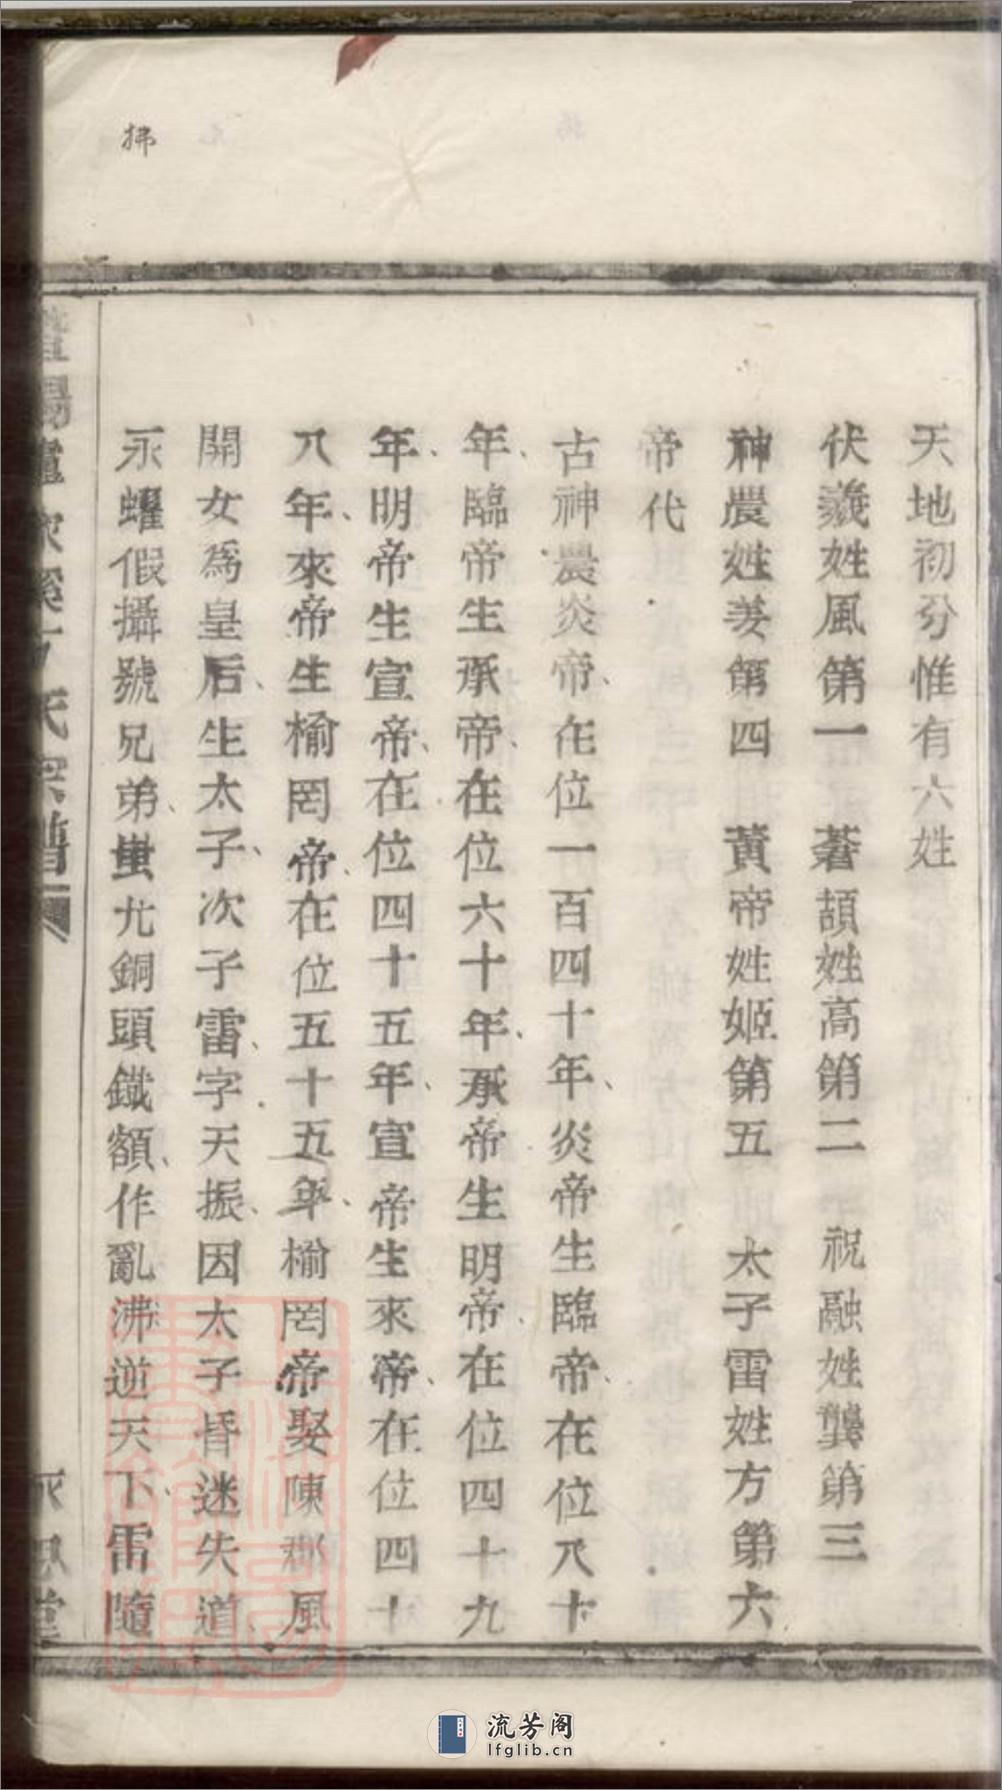 拂
天地初分惟有六姓
伏羲姓風第一　蒼頡姓高第二　祝融姓龔第三
神農姓姜第四　黃帝姓姬第五　太子雷姓方第六
帝代
古神農炎帝、在位一百四十年、炎帝生臨帝、在位八十
年、臨帝生承帝、在位六十年、承帝生明帝、在位四十九
年、明帝生宣帝、在位四十五年、宣帝生來帝、在位四十
八年、來帝生榆罔帝、在位五十五年、榆罔帝娶陳郡風
開女為皇后、生太子、次子雷、字天振、因太子昏迷失道、
永蠗假攝號兄弟、蚩尤銅頭鐵額、作亂沸逆天下、雷隨
氏宗譜
堂
流芳阁
lfglib.cn